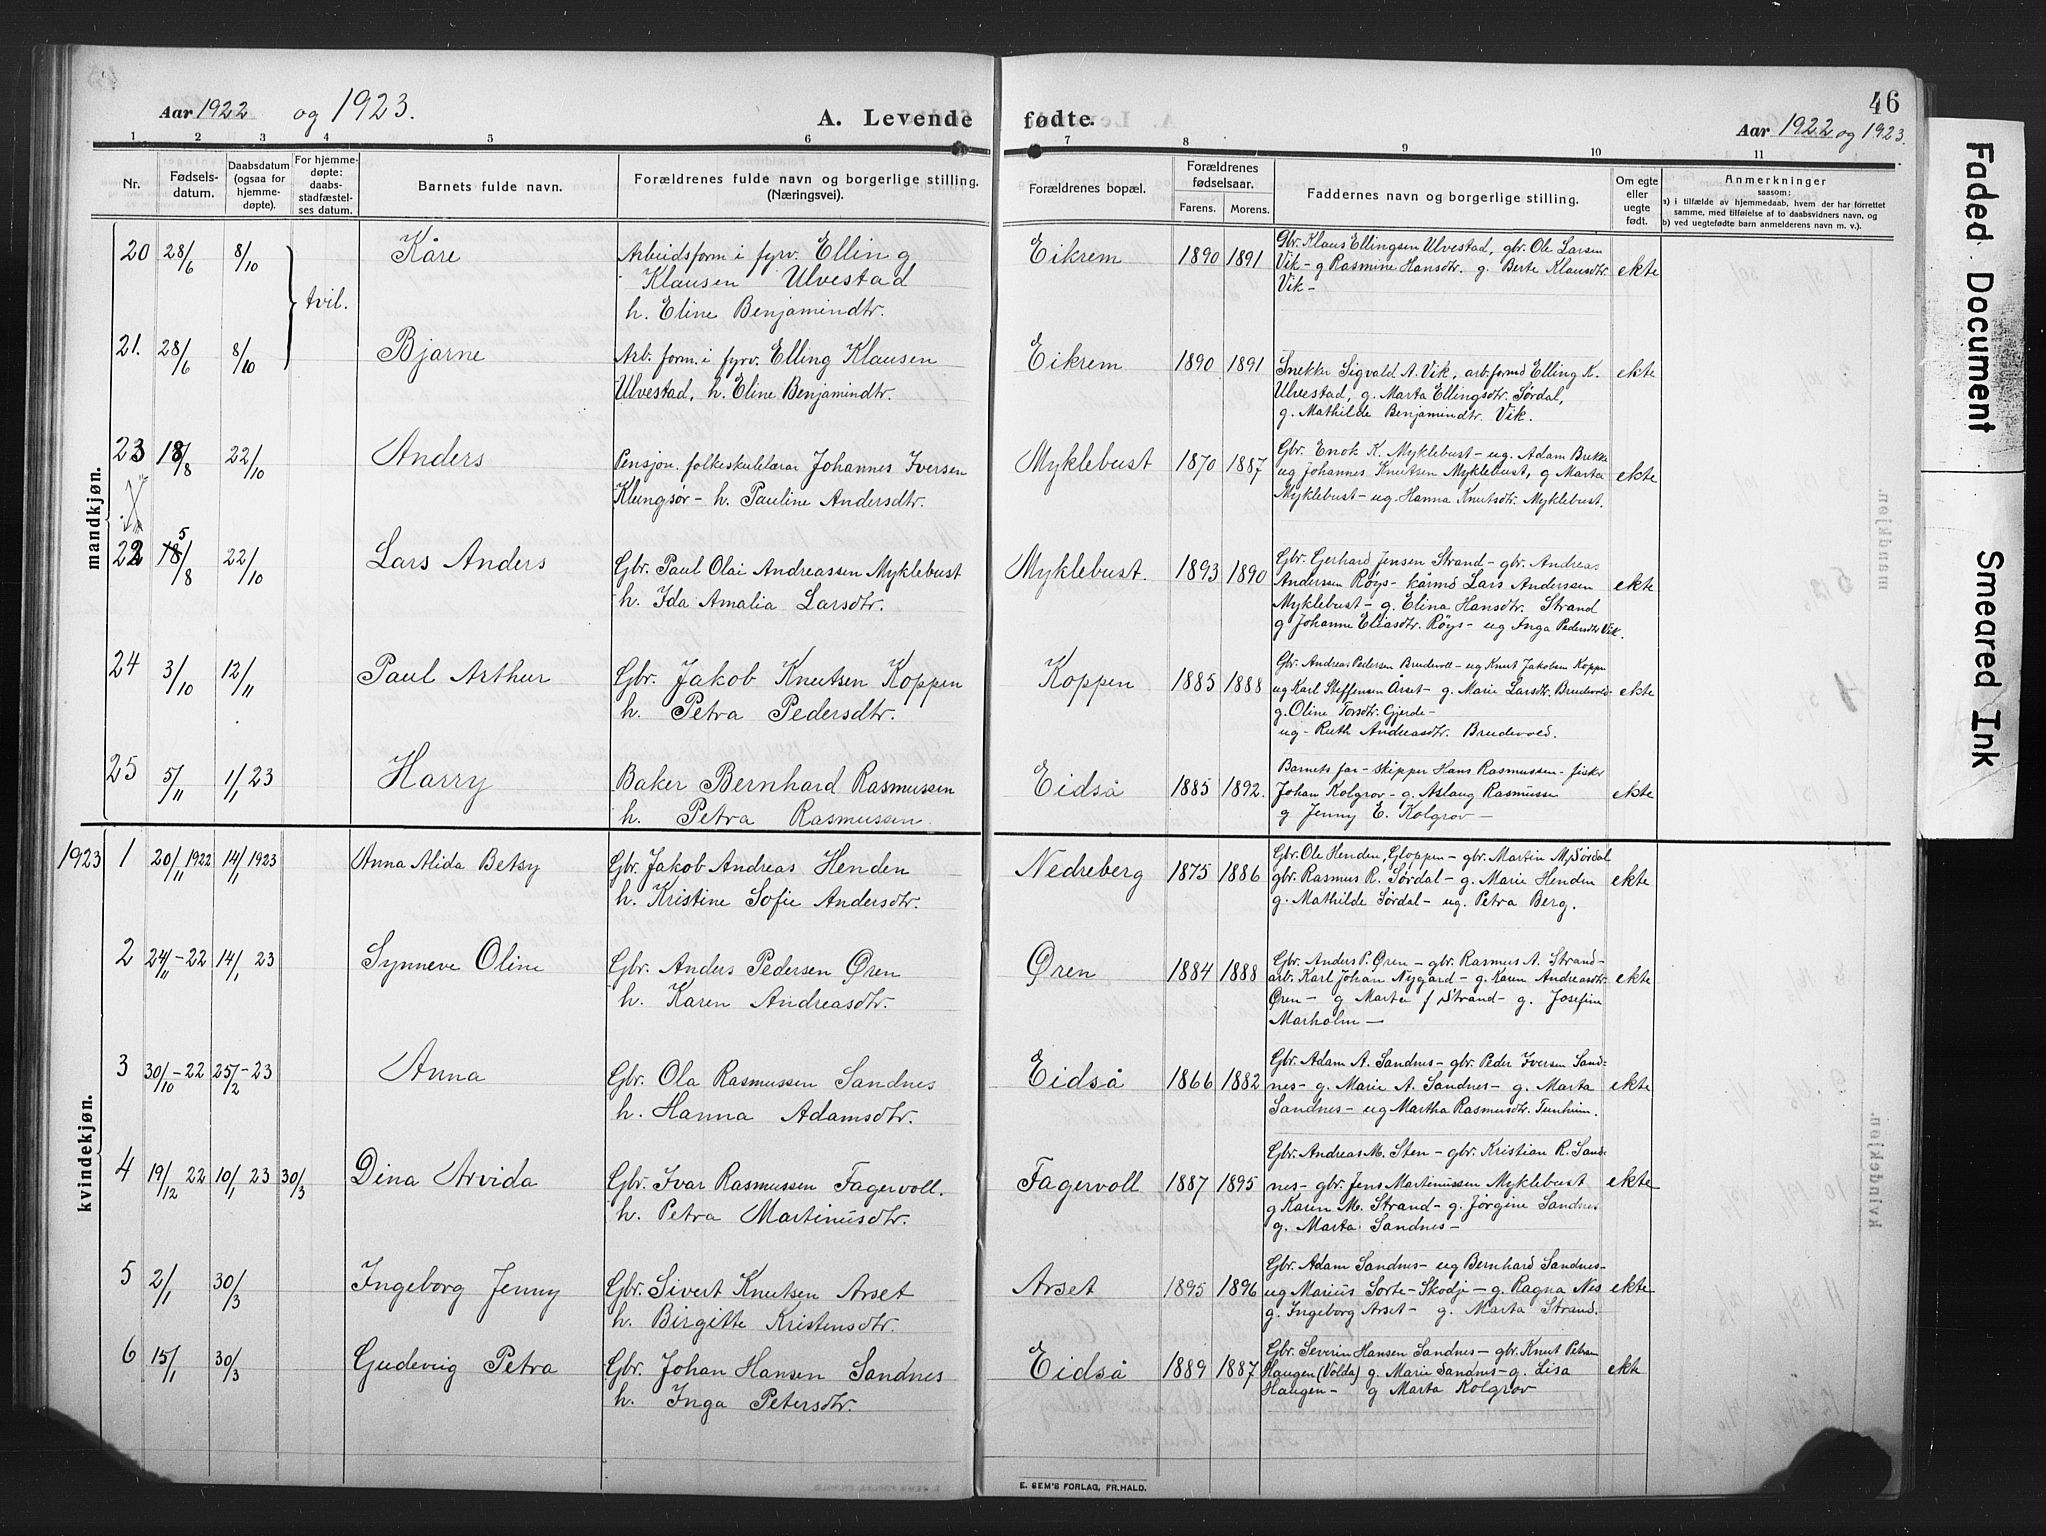 46
Aar 1922 og 1923.
A. Levende fødte.
Aar 1922 og 1923.
1 2 3 4 5 6 7 8 9 10 11
Nr.
Fødsels-
datum.
Daabsdatum
(ogsaa for
hjemme-
døpte).
For hjemme-
døpte: daabs-
stadfæstel-
ses datum.
Barnets fulde navn.
Forældrenes fulde navn og borgerlige stilling.
(Næringsvei).
Forældrenes bopæl.
Forældrenes
fødselsaar.
Farens. Morens.
Faddernes navn og borgerlige stilling.
Om egte
eller
uegte
født.
Anmerkninger
saasom:
a) i tilfælde av hjemmedaab, hvem der har forrettet
samme, med tilføielse af to daabsvidners navn, og
b) ved uegtefødte barn anmelderens navn m. v.).
mandkjøn.
20 28/6 8/10 tvil. Kåre
Arbeidsform i fyrv. Elling
Klausen Ulvestad
h. Eline Benjamindtr.
Eikrem 1890 1891
Gbr. Klaus Ellingsen Ulvestad, gbr. Ole Larsen
Vik - g Rasmine Hansdtr. g. Berte Klausdtr
Vik -
ekte
21. 28/6 8/10 Bjarne
Arb. form. i fyrv. Elling Klausen
Ulvestad, h. Eline Benjamindtr.
Eikrem 1890 1891
Snekker Sigvald A. Vik, arb.formd Elling K.
Ulvestad, g. Marta Ellingsdtr. Sørdal,
g. Mathilde Benjamindtr. Vik.
ekte
23 18/8 22/10 Anders
Pensjon. folkeskulelærar Johannes Iversen
Klungsør - h. Pauline Andersdtr.
Myklebust 1870 1887
Gbr. Enok K. Myklebust - ug. Adam Brekke
ug Johannes Knutsen Myklebust, g Marta
Myklebust - ug. Hanna Knutsdtr. Myklebust.
ekte
22 5/8 22/10 Lars Anders
Gbr. Paul Olai Andreassen Myklebust
h. Ida Amalia Larsdtr.
Myklebust. 1893 1890
Gbr. Gerhard Jensen Strand - gbr. Andreas
Anderssen Røys - kårmd Lars Anderssen
Myklebust - g. Elina Hansdtr. Strand
g Johanne Eliasdtr. Røys - ug Inga Pedersdtr Vik.
ekte
24 3/10 12/11 Paul Arthur
Gbr. Jakob Knutsen Koppen
h. Petra Pedersdtr.
Koppen 1885 1888
Gbr. Andreas Pedersen Brudevoll - ug Knut Jakobsen Koppen
ug Karl Steffensen Årset - g. Marie Larsdtr. Brudevold -
g. Oline Torsdtr. Gjerde -
ug - Ruth Andreasdtr. Brudevold.
ekte
25 5/11 1/1 23 Harry
Baker Bernhard Rasmussen
h. Petra Rasmussen.
Eidså 1885 1892.
Barnets far - skipper Hans Rasmussen - fisker
Johan Kolgrov - g. Aslaug Rasmussen
g Jenny E. Kolgrov -
ekte
kvindekjøn.
1923 1 20/11 1922 14/1 1923 Anna Alida Betsy
Gbr. Jakob Andreas Henden
h. Kristine Sofie Andersdtr.
Nedreberg 1875 1886
Gbr. Ole Henden, Gloppen - gbr. Martin M. Sørdal
gbr. Rasmus R. Sørdal - g. Marie Henden
g. Mathilde Sørdal - ug. Petra Berg.
ekte
2 24/11 - 22 14/1 23 Synneve Oline
Gbr. Anders Pedersen Øren
h. Karen Andreasdtr.
Øren 1884 1888
Gbr. Anders P. Øren - gbr. Rasmus A. Strand -
arb. Karl Johan Nygard - g. Karen Andreasdtr
Øren - g Marta J Strand - g. Josefine
Marholm -
ekte
3 30/10 - 22 25/2 - 23 Anna
Gbr. Ola Rasmussen Sandnes
h. Hanna Adamsdtr.
Eidså 1866 1882
Gbr. Adam A. Sandnes - gbr. Peder Iversen Sand-
nes - g. Marie A. Sandnes - g. Marta
Sandnes - ug Martha Rasmusdtr. Tunheim.
ekte
4 19/12 22 10/1 23 30/3 Dina Arvida
Gbr. Ivar Rasmussen Fagervoll.
h. Petra Martinusdtr.
Fagervoll 1887 1895
Gbr. Andreas M. Sten - gbr. Kristian R. Sand-
nes - gbr. Jens Martinussen Myklebust
g Karen M. Strand - g. Jørgine Sandnes
g. Marta Sandnes -
ekte
5 2/1 30/3 Ingeborg Jenny
Gbr. Sivert Knutsen Arset
h. Birgitte Kristensdtr.
Arset 1895 1896
Gbr. Adam Sandnes - ug Bernhard Sandnes -
ug Marius Sorte - Skodje - g. Ragna Nes
g. Ingeborg Arset - g. Marta Strand.
ekte
6 15/1 30/3 Gudveig Petra
Gbr. Johan Hansen Sandnes
h. Inga Petersdtr.
Eidså 1889 1887
Gbr. Severin Hansen Sandnes - gbr. Knut Petersen
Haugen (Volda) g. Marie Sandnes - g. Lisa
Haugen - g Marta Kolgrov
ekte
E. SEM'S FORLAG, FR.HALD.
Faded Document
Smeared Ink